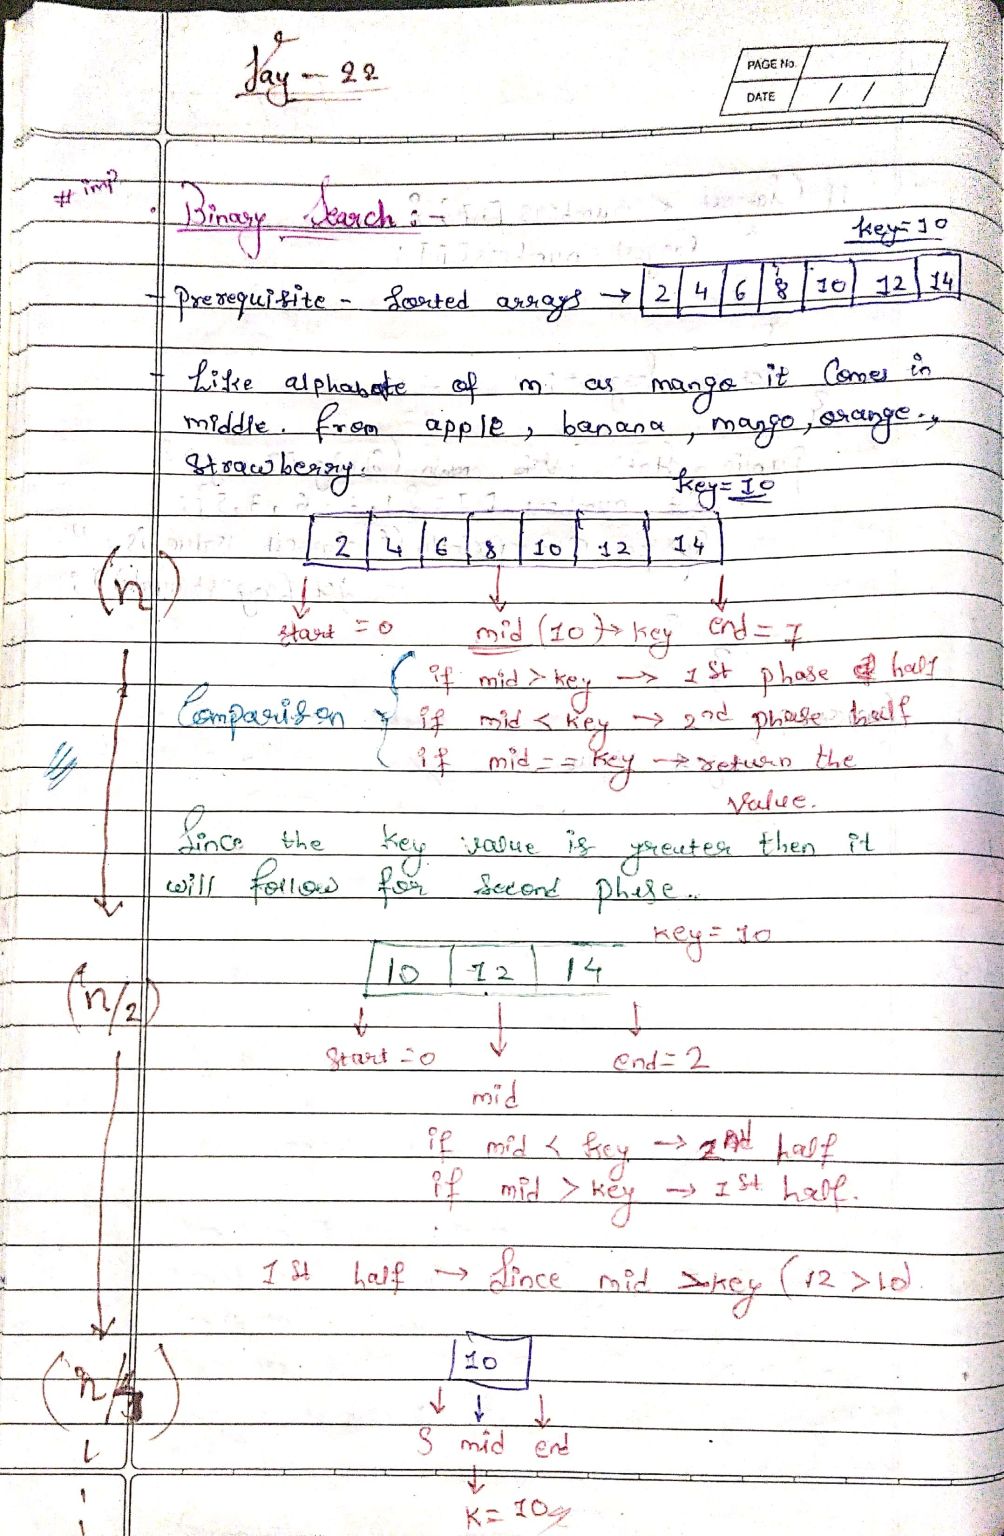 Day - 22
PAGE No.
DATE / /
# imp
Binary Search :-
key = 10
Prerequisite - Sorted arrays → 2 4 6 8 10 12 14
Like alphabate of m as mango it Comes in
middle. from apple, banana, mango, orange..,
Strawberry.
key = 10
2 4 6 8 10 12 14
(n)
start = 0 mid (10) → key end = 7
if mid > key → 1st phase half
Comparison if mid < key → 2nd phase half
if mid == key → return the
value.
Since the key value is greater then it
will follow for second phase..
key = 10
10 12 14
(n/2)
Start = 0 end = 2
mid
if mid < key → 2nd half
if mid > key → 1st half.
1st half → Since mid > key (12 > 10)
10
(n/4)
S mid end
K = 10